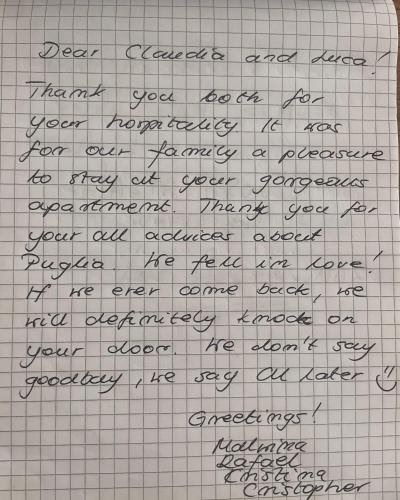 Dear Claudia and Luca!
Thank you both for
your hospitality. It was
for our family a pleasure
to stay at your gorgeous
apartment. Thank you for
your all advices about
Puglia. We fell in love!
If we ever come back, we
will definitely knock on
your door. We don't say
goodbay, we say CU later
Greetings!
Malwina
Rafael
Cristina
Cristopher